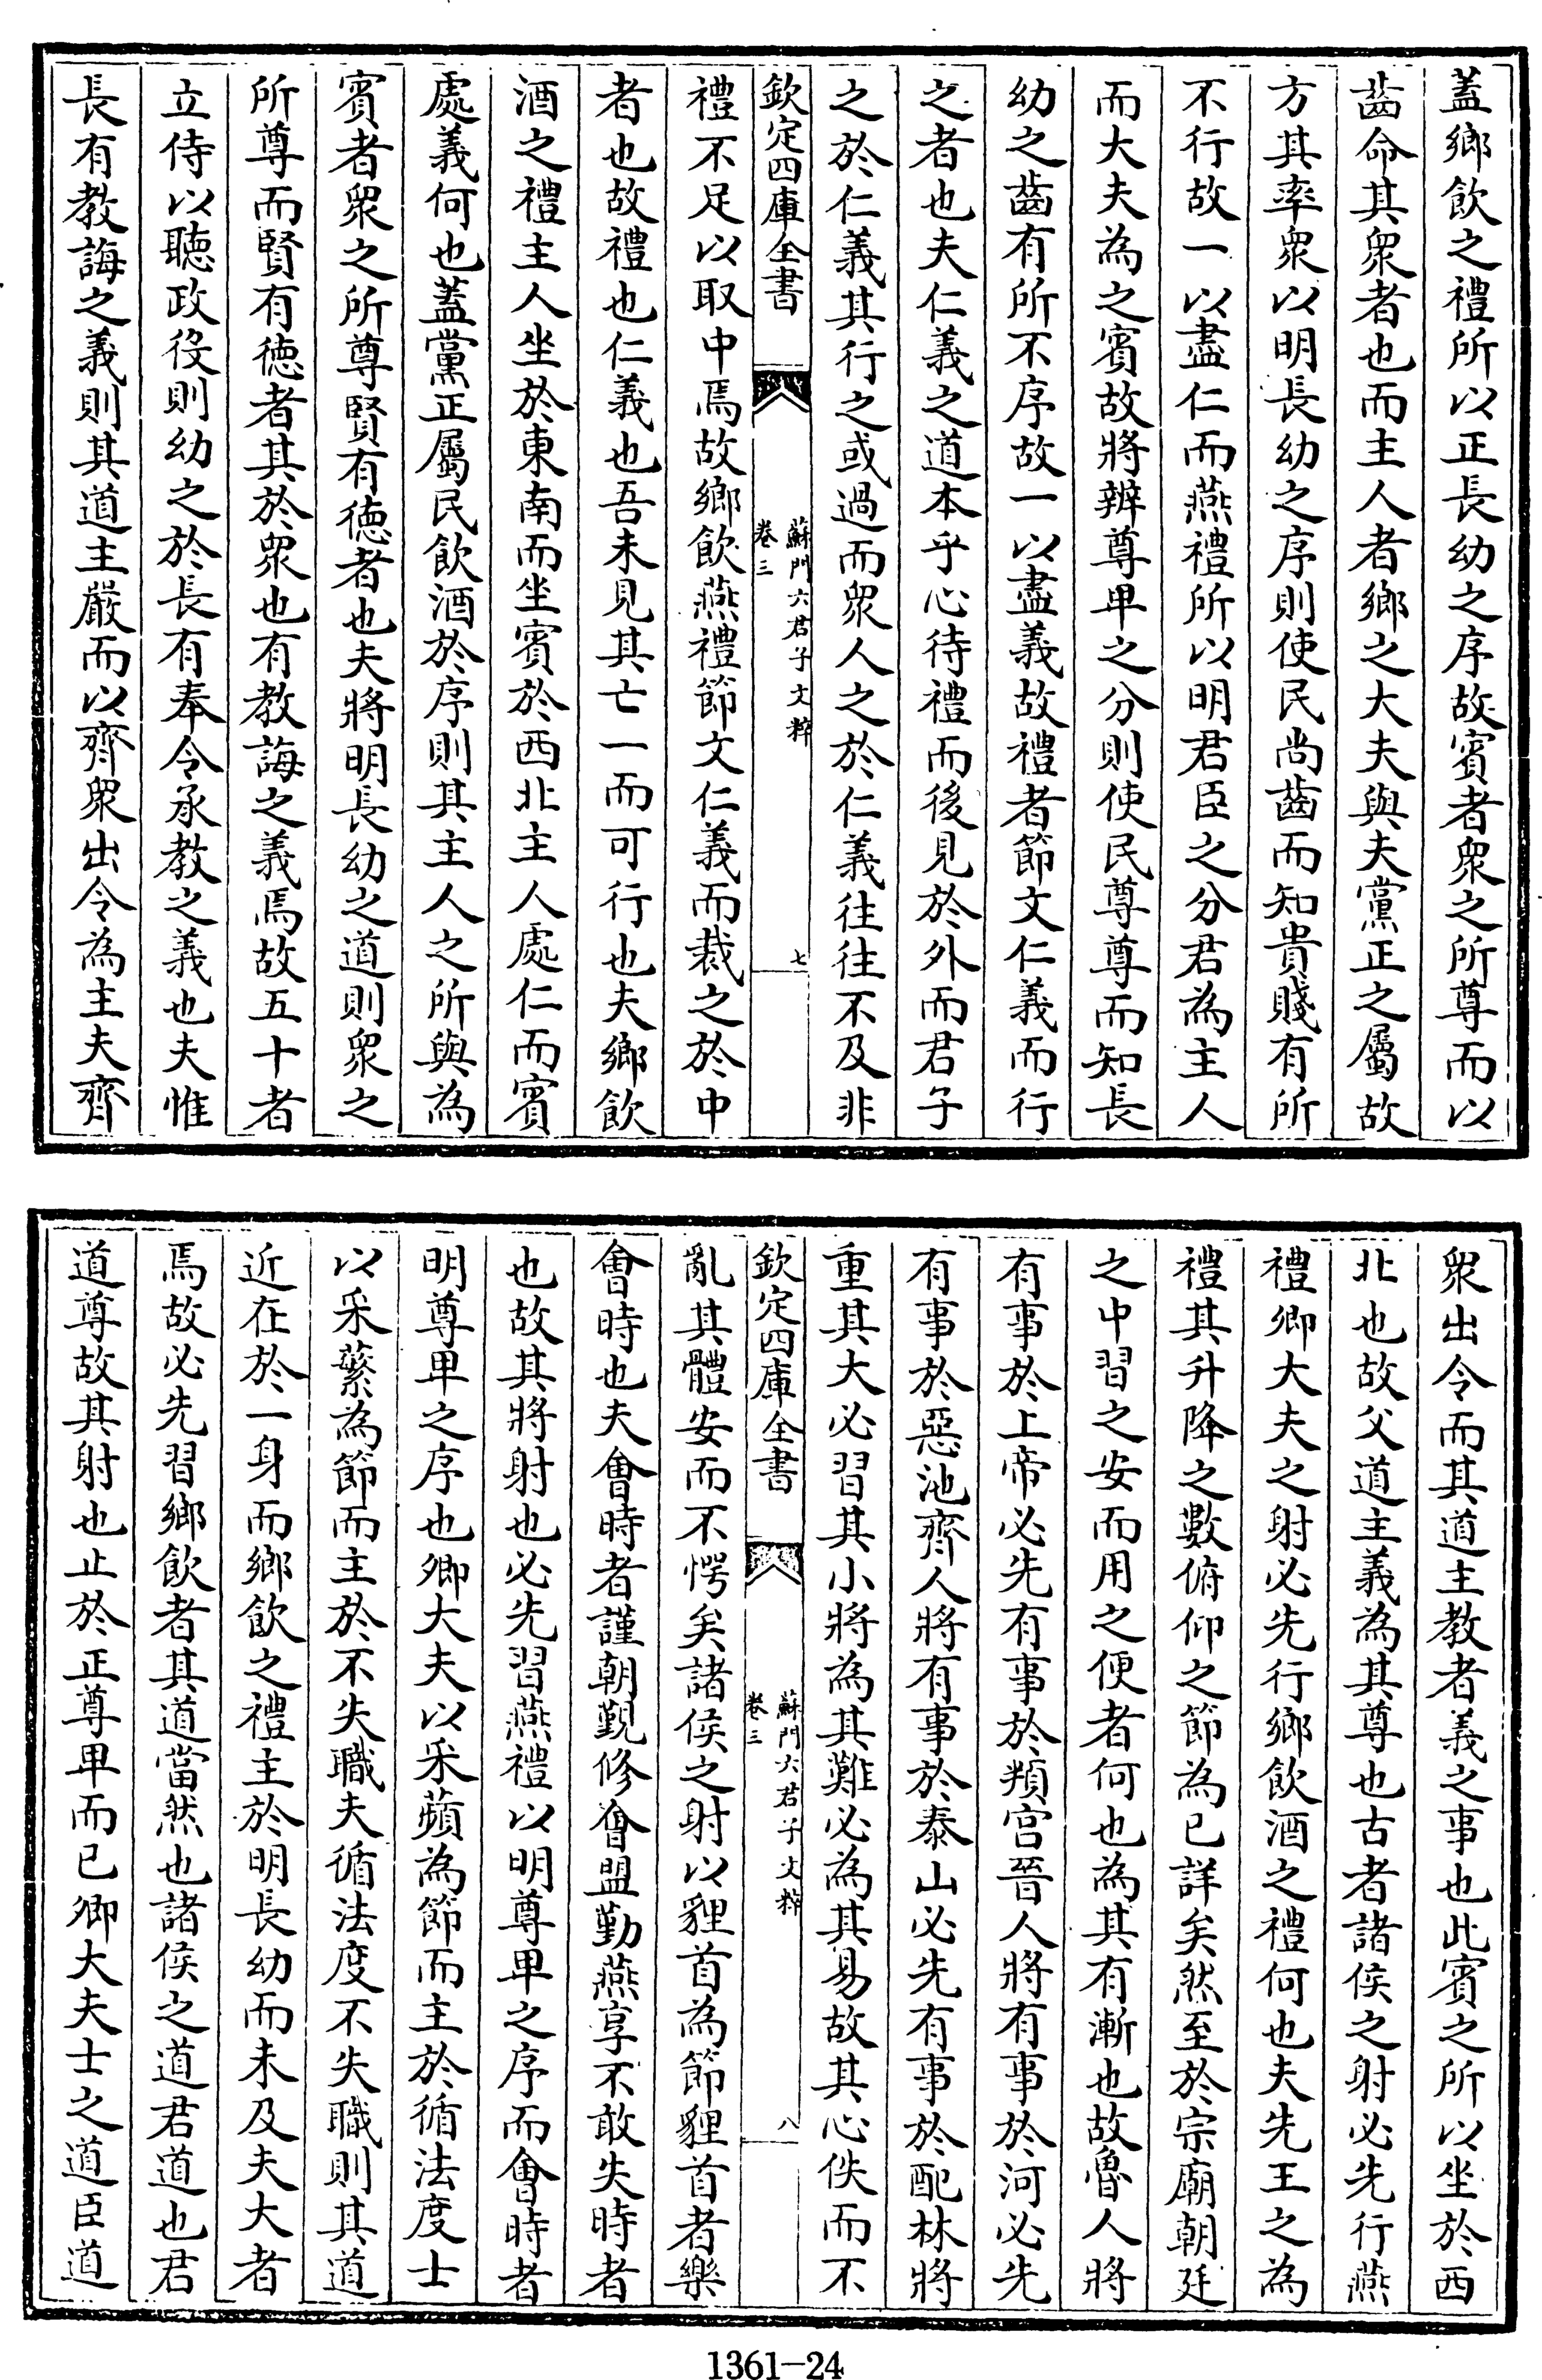 蓋鄉飲之禮所以正長幼之序故賓者衆之所尊而以
齒命其衆者也而主人者鄉之大夫與夫黨正之屬故
方其率衆以明長幼之序則使民尚齒而知貴賤有所
不行故一以盡仁而燕禮所以明君臣之分君為主人
而大夫為之賓故將辨尊卑之分則使民尊尊而知長
幼之齒有所不序故一以盡義故禮者節文仁義而行
之者也夫仁義之道本乎心待禮而後見於外而君子
之於仁義其行之或過而衆人之於仁義往往不及非
欽定四庫全書
蘇門六君子文粹
卷三
七
禮不足以取中焉故鄉飲燕禮節文仁義而裁之於中
者也故禮也仁義也吾未見其亡一而可行也夫鄉飲
酒之禮主人坐於東南而坐賓於西北主人處仁而賓
處義何也蓋黨正屬民飲酒於序則其主人之所與為
賓者衆之所尊賢有徳者也夫將明長幼之道則衆之
所尊而賢有徳者其於衆也有教誨之義焉故五十者
立侍以聽政役則幼之於長有奉令承教之義也夫惟
長有教誨之義則其道主嚴而以齊衆出令為主夫齊
衆出令而其道主教者義之事也此賓之所以坐於西
北也故父道主義為其尊也古者諸侯之射必先行燕
禮卿大夫之射必先行鄉飲酒之禮何也夫先王之為
禮其升降之數俯仰之節為已詳矣然至於宗廟朝廷
之中習之安而用之便者何也為其有漸也故魯人將
有事於上帝必先有事於頖宫晉人將有事於河必先
有事於惡池齊人將有事於泰山必先有事於配林將
重其大必習其小將為其難必為其易故其心佚而不
欽定四庫全書
蘇門六君子文粹
卷三
八
亂其體安而不愕矣諸侯之射以貍首為節貍首者樂
會時也夫會時者謹朝覲修會盟勤燕享不敢失時者
也故其將射也必先習燕禮以明尊卑之序而會時者
明尊卑之序也卿大夫以采蘋為節而主於循法度士
以采蘩為節而主於不失職夫循法度不失職則其道
近在於一身而鄉飲之禮主於明長幼而未及夫大者
焉故必先習鄉飲者其道當然也諸侯之道君道也君
道尊故其射也止於正尊卑而已卿大夫士之道臣道
1361-24